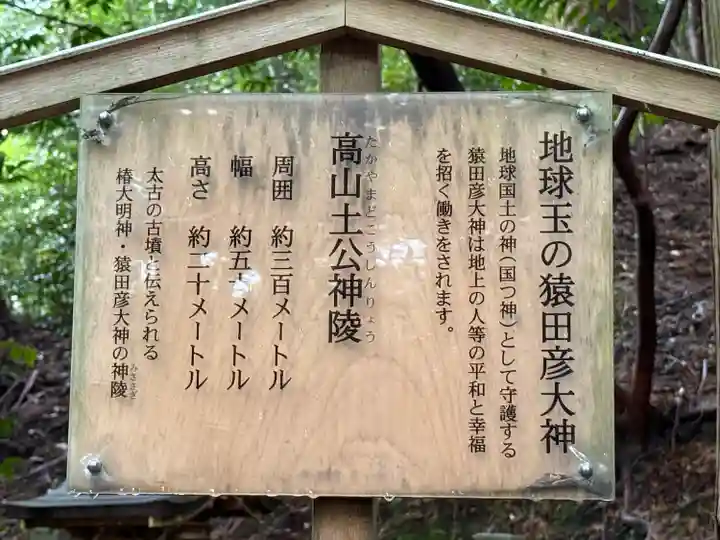 地球玉の猿田彦大神
地球国土の神（国つ神）として守護する
猿田彦大神は地上の人等の平和と幸福
を招く働きをされます。
高山土公神陵
たかやまどこうしんりょう
周囲　約三百メートル
幅　約五十メートル
高さ　約二十メートル
太古の古墳と伝えられる
椿大明神・猿田彦大神の神陵
みささぎ